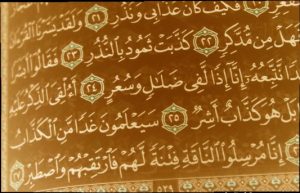 فَكَيْفَ كَانَ عَذَابِى وَنُذُرِ ﴿٢١﴾ وَلَقَدْ يَسَّرْنَا ٱلْقُرْءَانَ
فَهَلْ مِن مُّدَّكِرٍ ﴿٢٢﴾ كَذَّبَتْ ثَمُودُ بِٱلنُّذُرِ ﴿٢٣﴾ فَقَالُوٓا۟ أَبَشَرًا
نَّتَّبِعُهُۥٓ إِنَّآ إِذًا لَّفِى ضَلَٰلٍ وَسُعُرٍ ﴿٢٤﴾ أَءُلْقِىَ ٱلذِّكْرُ عَلَيْهِ
بَلْ هُوَ كَذَّابٌ أَشِرٌ ﴿٢٥﴾ سَيَعْلَمُونَ غَدًا مَّنِ ٱلْكَذَّابُ
إِنَّا مُرْسِلُوا۟ ٱلنَّاقَةِ فِتْنَةً لَّهُمْ فَٱرْتَقِبْهُمْ وَٱصْطَبِرْ ﴿٢٧﴾
٥٢٩